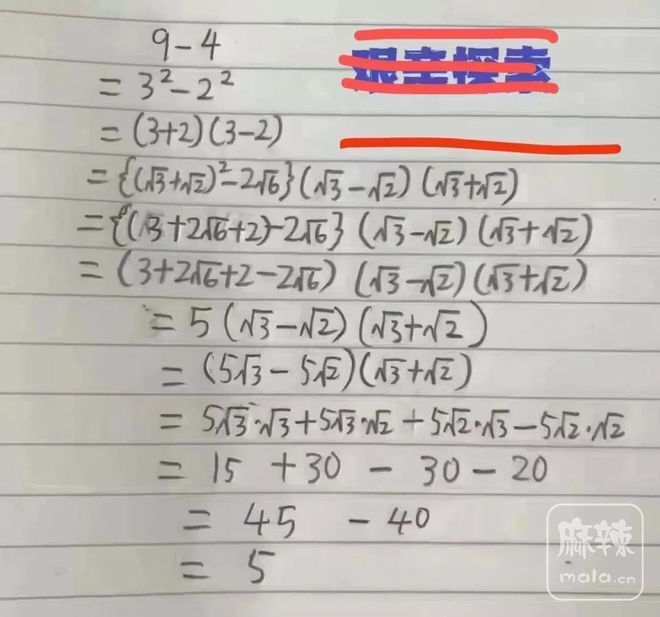 9-4
= 3²-2²
= (3+2)(3-2)
= {(√3+√2)²-2√6}(√3-√2)(√3+√2)
= {(3+2√6+2)-2√6}(√3-√2)(√3+√2)
= (3+2√6+2-2√6)(√3-√2)(√3+√2)
= 5(√3-√2)(√3+√2)
= (5√3-5√2)(√3+√2)
= 5√3·√3+5√3·√2+5√2·√3-5√2·√2
= 15 +30 - 30-20
= 45 -40
= 5
麻辣
mala.cn